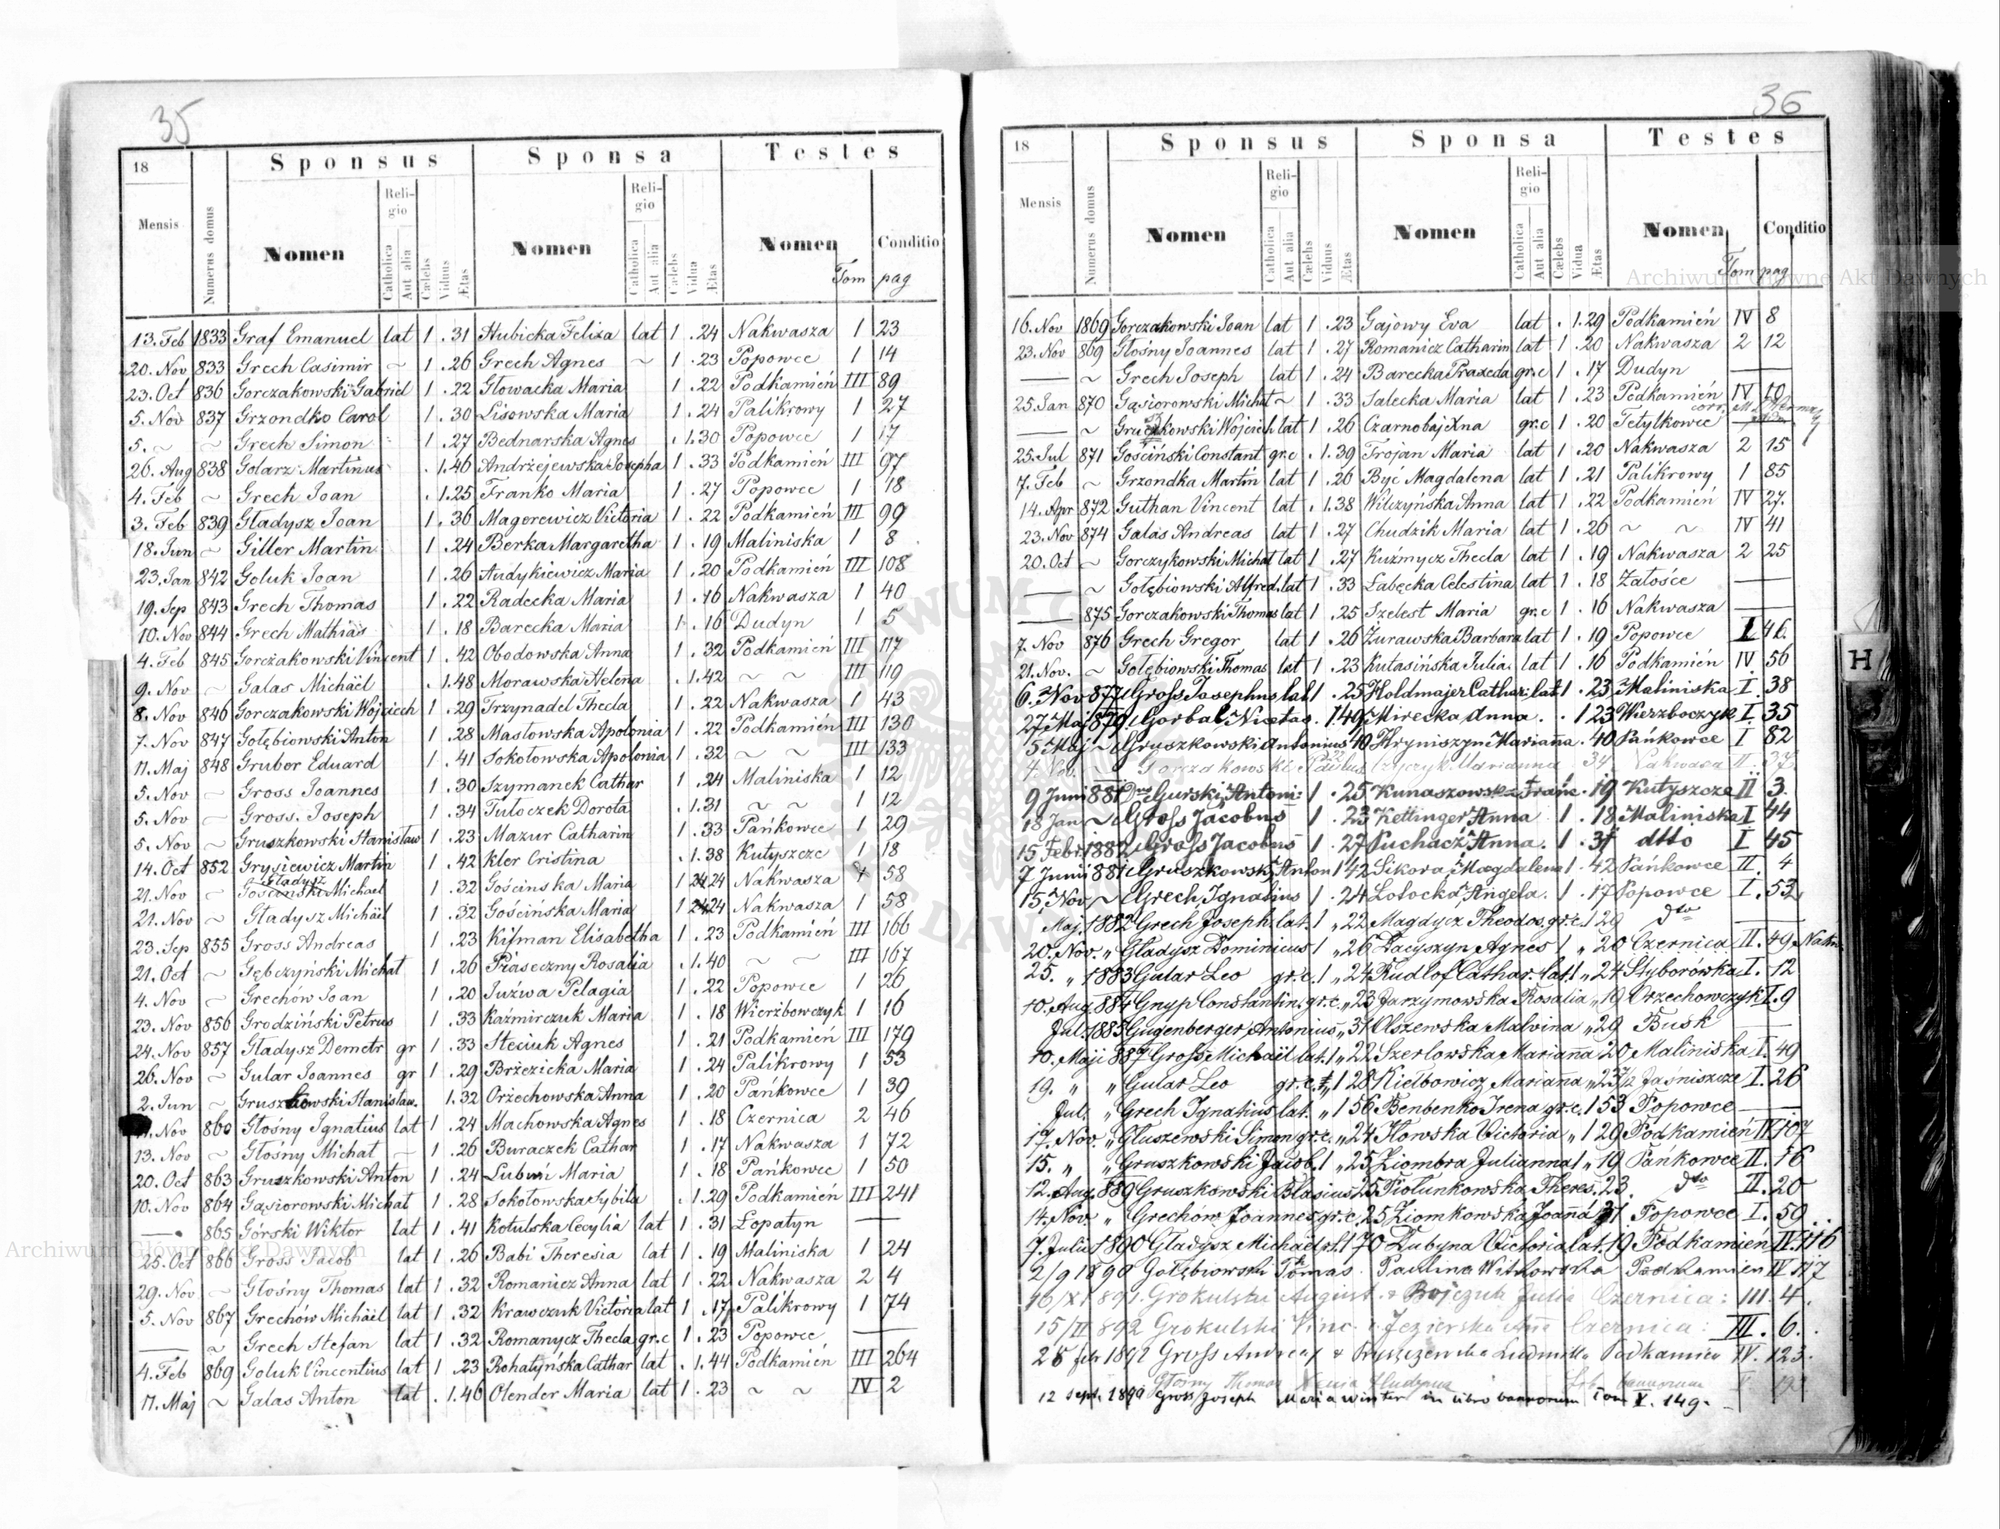 35
18 Sponsus Sponsa Testes
Mensis Numerus domus Nomen Religio Catholica Aut alia Cælebs Viduus Ætas Nomen Religio Catholica Aut alia Cælebs Vidua Ætas Nomen Conditio
Tom pag
13. Feb 1833 Graf Emanuel lat 1 . 31 Hubicka Feliza lat 1 . 24 Nakwasza 1 23
20. Nov 833 Grech Casimir ~ 1 . 26 Grech Agnes ~ 1 . 23 Popowce 1 14
23. Oct 836 Gorczakowski Gabriel 1 . 22 Głowacka Maria 1 . 22 Podkamień III 89
5. Nov 837 Grzondko Carol 1 . 30 Lisowska Maria 1 . 24 Palikrowy 1 27
5. ~ ~ Grech Simon 1 . 27 Bednarska Agnes . 1. 30 Popowce 1 17
26. Aug 838 Golarz Martinus . 1. 46 Andrzejewska Josepha 1 . 33 Podkamień III 97
4. Feb ~ Grech Joan . 1. 25 Franko Maria 1 . 27 Popowce 1 18
3. Feb 839 Gładysz Joan 1 . 36 Magorewicz Victoria 1 . 22 Podkamień III 99
18. Jun ~ Giller Martin 1 . 24 Berka Margaretha 1 . 19 Maliniska 1 8
23. Jan 842 Goluk Joan 1 . 26 Audykiewicz Maria 1 . 20 Podkamień III 108
19. Sep 843 Grech Thomas 1 . 22 Radecka Maria 1 . 16 Nakwasza 1 40
10. Nov 844 Grech Mathias 1 . 18 Barecka Maria 1 . 16 Dudyn 1 5
4. Feb 845 Gorczakowski Vincent 1 . 42 Obodowska Anna 1 . 32 Podkamień III 117
9. Nov ~ Galas Michäel . 1. 48 Morawska Helena . 1. 42 ~ ~ III 119
8. Nov 846 Gorczakowski Wojciech 1 . 29 Trzynadel Thecla 1 . 22 Nakwasza 1 43
7. Nov 847 Gołębiowski Anton 1 . 28 Masłowska Apolonia 1 . 22 Podkamień III 130
11. Maj 848 Grubor Eduard 1 . 41 Sokołowska Apolonia 1 . 32 ~ ~ III 133
5. Nov ~ Gross Joannes 1 . 30 Szymanek Cathar 1 . 24 Maliniska 1 12
5. Nov ~ Gross Joseph 1 . 34 Tuloczek Dorota . 1. 31 ~ ~ 1 12
5. Nov ~ Gruszkowski Stanisław 1 . 23 Mazur Catharin 1 . 33 Pańkowce 1 29
14. Oct 852 Grysiewicz Martin 1 . 42 Kler Cristina . 1. 38 Kutyszcze 1 18
Gładysz
21. Nov ~ Gościński Michael 1 . 32 Gościnska Maria 1 24 Nakwasza 58
21. Nov ~ Gładysz Michäil 1 . 32 Gościńska Maria 1 24 Nakwasza 1 58
23. Sep 855 Gross Andreas 1 . 23 Kifman Elisabetha 1 . 23 Podkamień III 166
21. Oct ~ Gębczyński Michał 1 . 26 Piaseczny Rosalia . 1. 40 ~ ~ III 167
4. Nov ~ Grechów Joan 1 . 20 Juźwa Pelagia 1 . 22 Popowce 1 26
23. Nov 856 Grodziński Petrus 1 . 33 Kaźmirczuk Maria 1 . 18 Wierzbowczyk 1 16
24. Nov 857 Gładysz Demetr gr 1 . 33 Steciuk Agnes 1 . 21 Podkamień III 179
26. Nov ~ Gular Joannes gr 1 . 29 Brzezicka Maria 1 . 24 Palikrowy 1 53
2. Jun ~ Gruszkowski Stanisław. 1. 32 Orzechowska Anna 1 . 20 Pańkowce 1 39
11. Nov 860 Głośny Ignatius lat 1 . 24 Machowska Agnes 1 . 18 Czernica 2 46
13. Nov ~ Głośny Michał ~ 1 . 26 Buraczek Cathar 1 . 17 Nakwasza 1 72
20. Oct 863 Gruszkowski Anton 1 . 24 Lubuń Maria 1 . 18 Pańkowce 1 50
10. Nov 864 Gąsiorowski Michał 1 . 28 Sokołowska Sybila . 1. 29 Podkamień III 241
— 865 Górski Wiktor lat 1 . 41 Kotulska Cecylia lat 1 . 31 Łopatyn —
25. Oct 866 Gross Jacob lat 1 . 26 Babi Theresia lat 1 . 19 Maliniska 1 24
29. Nov ~ Głośny Thomas lat 1 . 32 Romanicz Anna lat 1 . 22 Nakwasza 2 4
5. Nov 867 Grechów Michäil lat 1 . 32 Krawczuk Victoria lat 1 . 17 Palikrowy 1 74
— ~ Grech Stefan lat 1 . 32 Romanycz Thecla gr.c 1 . 23 Popowce —
4. Feb 869 Goluk Vincentius lat 1 . 23 Rohatyńska Cathar lat . 1. 44 Podkamień III 264
17. Maj ~ Galas Anton lat . 1. 46 Olender Maria lat 1 . 23 ~ ~ IV 2
36
18 Sponsus Sponsa Testes
Mensis Numerus domus Nomen Religio Catholica Aut alia Cælebs Viduus Ætas Nomen Religio Catholica Aut alia Cælebs Vidua Ætas Nomen Conditio
Tom pag
16. Nov 1869 Gorczakowski Joan lat 1 . 23 Gajowy Eva lat . 1. 29 Podkamień IV 8
23. Nov 869 Głośny Joannes lat 1 . 27 Romanicz Catharin lat 1 . 20 Nakwasza 2 12
— ~ Grech Joseph lat 1 . 24 Barecka Praxeda gr.c 1 . 17 Dudyn —
25. Jan 870 Gąsiorowski Michał ~ 1 . 33 Salecka Maria lat 1 . 23 Podkamień IV 10
— ~ Gruszkowski Wojciech lat 1 . 26 Czarnobaj Xna gr.c 1 . 20 Tetylkowce —
25. Jul 871 Gościński Constant gr.c . 1. 39 Trojan Maria lat 1 . 20 Nakwasza 2 15
7. Feb ~ Grzondka Martin lat 1 . 26 Być Magdalena lat 1 . 21 Palikrowy 1 85
14. Apr 872 Guthan Vincent lat . 1. 38 Wilczyńska Anna lat 1 . 22 Podkamień IV 27.
23. Nov 874 Galas Andreas lat 1 . 27 Chudzik Maria lat 1 . 26 ~ ~ IV 41
20. Oct ~ Gorczykowski Michał lat 1 . 27 Kuźmycz Thecla lat 1 . 19 Nakwasza 2 25
— ~ Gołębiowski Alfred lat 1 . 33 Łabęcka Celestina lat 1 . 18 Załośce —
— 875 Gorczakowski Thomas lat 1 . 25 Szelest Maria gr.c 1 . 16 Nakwasza —
7. Nov 876 Grech Gregor lat 1 . 26 Żurawska Barbara lat 1 . 19 Popowce I 46.
21. Nov. ~ Gołębiowski Thomas lat 1 . 23 Kutasińska Julia lat 1 . 16 Podkamień IV 56
6. Nov 877 Gross Josephus lat 1 . 25 Holdmajer Cathar. lat 1 . 23 Maliniska I. 38
27 Maj 1879 Gorbal Nicetas . 1 49 Mirecka Anna . . 1 23 Wierzboczyk I. 35
5 Maj ~ Gruszkowski Antonius 40 Hryniszyn Marianna . 40 Pańkowce I 82
Gorczakowski Paulus Marianna Nakwasza II.
9 Juni 881 Gurski Antoni 1 . 25 Kunaszowska Franc . 19 Kutyszcze II 3.
18 Jan ~ Gross Jacobus 1 . 23 Kettinger Anna 1 . 18 Maliniska I 44
15 Febr. 1882 Gross Jacobus 1 . 27 Puchacz Anna. 1 . 31 dtto I 45
7 Junii 881 Gruszkowski Anton 1 42 Sikora Magdalena 1 . 42 Pańkowce II. 4
15 Nov. ~ Grech Ignatius 1 . 24 Łołocka Angela. 1 . 17 Popowce I. 53
Maj. 1882 Grech Joseph. lat. 1 „ 22 Magdycz Theodos. gr.c. 1 29 dto —
20. Nov. „ Gladysz Dominicus 1 „ 26 Łacyszyn Agnes 1 „ 20 Czernica II. 49
25. „ 1883 Gular Leo gr.c. 1 „ 24 Rudlof Cathar. lat. 1 „ 24 Styborówka I. 12
10. Aug. 884 Gnyp Constantin. gr.c. „ 23 Jarzymowska Rosalia „ 19 Orzechowczyk I. 9
Jul. 1885 Gugenberger Antonius „ 31 Olszewska Malvina „ 29 Busk —
10. Maji 887 Gross Michaël lat. 1 „ 22 Szerlowska Marianna 20 Maliniska I. 49
19. „ „ Gular Leo gr.c. 1 28 Kiełbowicz Marianna „ 23 Jaśniszcze I. 26
Jul. „ Grech Ignatius lat. „ 1 56 Benbenko Irena gr.c. 1 53 Popowce —
17. Nov. „ Głuszewski Simon gr.c. „ 24 Iłowska Victoria „ 1 29 Podkamień IV 107
15. „ „ Gruszkowski Jacob. 1 „ 25 Ziombra Julianna 1 „ 19 Pańkowce II. 16
12. Aug. 889 Gruszkowski Blasius 25 Piołunkowska Theres. 23. dto II. 20
14. Nov. „ Grechów Joannes gr.c. 25 Ziomkowska Joanna 31 Popowce I. 59
7. Julii 1890 Gladysz Michäel 1 70 Łabyna Victoria lat. 19 Podkamień IV. 116
2/9 1890 Gołębiowski Tomas. Paulina Witkowska Podkamień IV 117
16/XI 891. Grokulski August. Bojczuk Julia Czernica: III. 4.
15/II 892 Grokulski Vinc. Jezierska Czernica: III. 6.
25 febr 1892 Gross Andreas Ludmilla Podkamień IV. 123.
Głośny Thomas
12 Sept. 1899 Gross Joseph Maria Winter in libro bannorum Tom V. 149.
H
Archiwum Główne Akt Dawnych
Archiwum Główne Akt Dawnych